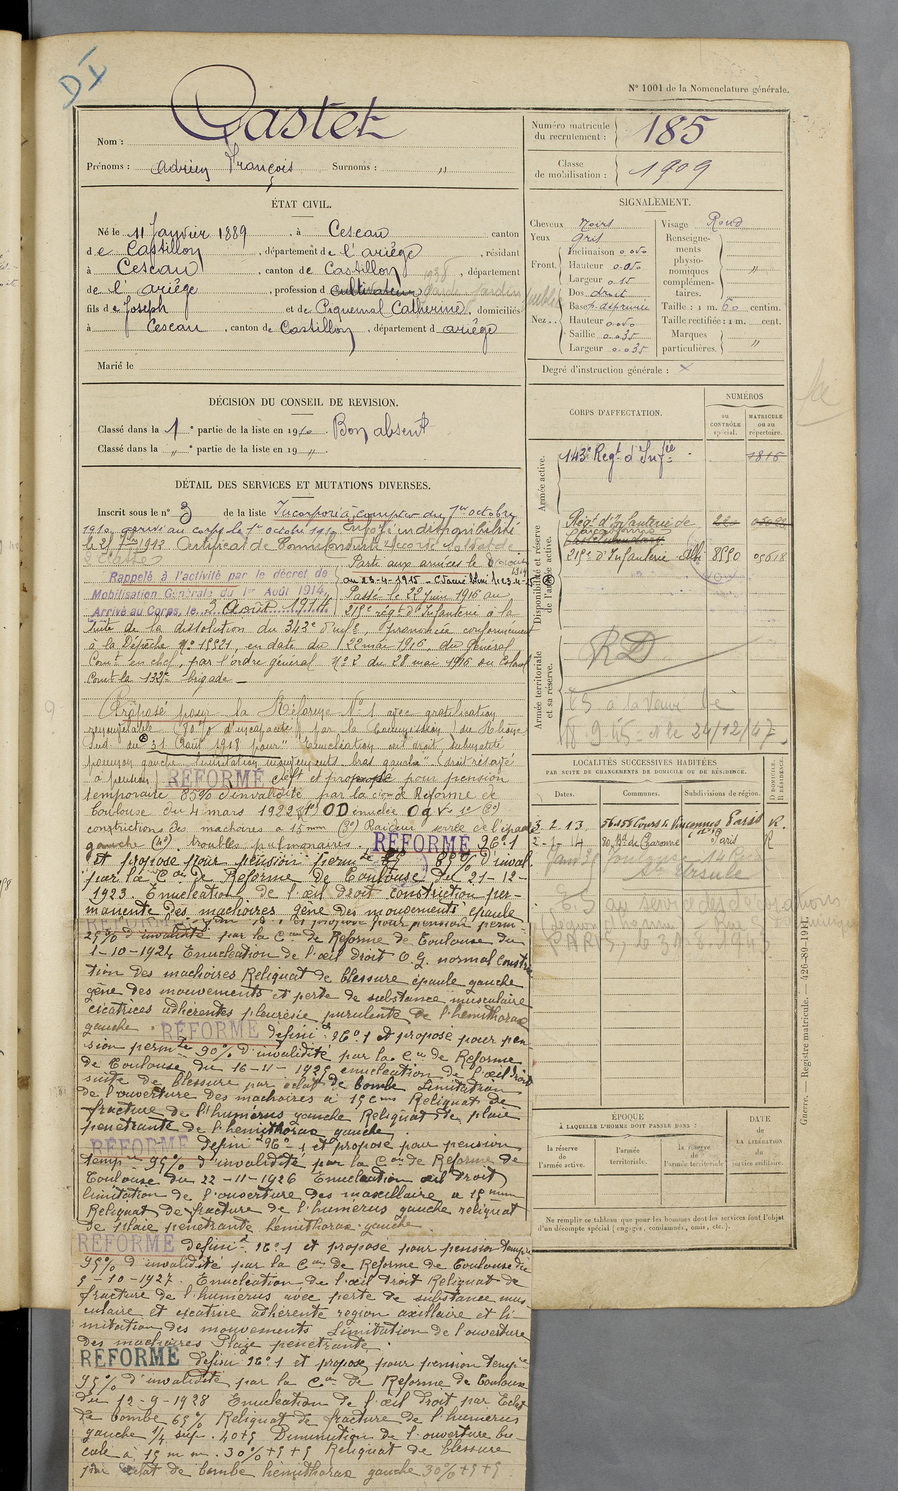 D I
N° 1001 de la Nomenclature générale.
Nom : Castet
Prénoms : Adrien François Surnoms : "
Numéro matricule du recrutement : 185
Classe de mobilisation : 1909
ÉTAT CIVIL.
Né le 11 Janvier 1889, à Cescau canton
de Castillon, département de l'ariège, résidant
à Cescau, canton de Castillon, département
de l'ariège, profession de Cultivateur 1936 Garde Jardin public
fils de Joseph et de Piquemal Catherine, domiciliés
à Cescau, canton de Castillon, département d'ariège
Marié le
SIGNALEMENT.
Cheveux Noirs
Yeux Gris
Front. Inclinaison 0.050
Hauteur 0.050
Largeur 0.15
Nez. Dos droit
Base h. déprimée
Hauteur 0.050
Saillie 0.035
Largeur 0.035
Visage Rond
Renseignements physionomiques complémentaires. "
Taille : 1 m. 60 centim.
Taille rectifiée : 1 m. cent.
Marques particulières. "
Degré d'instruction générale : X
DÉCISION DU CONSEIL DE REVISION.
Classé dans la 1e partie de la liste en 1910 Bon absent
Classé dans la " e partie de la liste en 19 "
DÉTAIL DES SERVICES ET MUTATIONS DIVERSES.
Inscrit sous le n° 3 de la liste Incorporé à compter du 1er octobre
1910, arrivé au corps le 1er octobre 1910. Envoyé en disponibilité
le 25 7bre 1912 Certificat de bonne conduite accordé. Soldat de
2e classe
Rappelé à l'activité par le décret de
Mobilisation Générale du 1er Août 1914
Arrivé au Corps, le 3 Août 1914
Parti aux armées le
au 23-4-1915
Passé le 22 Juin 1916 au
215e régt d'Infanterie à la
suite de la dissolution du 343e d'Infie, prononcée conformément
à la Dépêche N° 15521, en date du 22 mai 1916, du Général
Comt en chef, par l'ordre général N° 2 du 28 mai 1916 du Colonel
Comt la 132e brigade.
Proposé pour la Réforme N° 1 avec gratification
renouvelable (80% d'incapacité) par la Commission du Rhône
Sud du 31 Août 1918 pour "Enucléation œil droit,
poumon gauche limitation mouvements bras gauche"
REFORMÉ déft et proposé pour pension
temporaire 85% d'invalidité par la cion de Réforme de
Toulouse du 4 mars 1922 (1°) OD énuclée
constrictions des machoires à 15mm (3°) Raideur serrée de l'épaule
gauche (4°) troubles pulmonaires. REFORMÉ N° 1
et proposé pour pension permte 85% d'inval
par la Con de Réforme de Toulouse du 21-12-
1923. Enucléation de l'œil droit constriction per-
manente des machoires gêne des mouvements épaule
25% d'invalidité par la Con de Réforme de Toulouse du
1-10-1924 Enucléation de l'œil droit O.G. normal Constric
tion des machoires Reliquat de blessure épaule gauche
gêne des mouvements et perte de substance musculaire
cicatrices adhérentes pleurésie purulente de l'hémithorax
gauche. REFORMÉ défini N° 1 et proposé pour pen
sion permte 90% d'invalidité par la Con de Reforme
de Toulouse du 16-11-1925 énucleation de l'œil droit
suite de blessure par éclat de bombe Limitation
de l'ouverture des machoires à 15 mm Reliquat de
fracture de l'humérus gauche Reliquat de plaie
penetrante de l'hémithorax gauche
REFORMÉ defini N° 1 et proposé pour pension
tempre 95% d'invalidité par la Con de Reforme de
Toulouse du 22-11-1926 Enucléation œil droit
limitation de l'ouverture des maxillaire a 15 mm
Reliquat de fracture de l'humerus gauche reliquat
de plaie penétrante hemithorax gauche.
REFORMÉ defini N° 1 et proposé pour pension tempre
95% d'invalidité par la Con de Reforme de Toulouse du
5-10-1927 Enucléation de l'œil droit Reliquat de
fracture de l'humerus avec perte de substance mus-
culaire et cicatrice adhérente region axillaire et li-
mitation des mouvements Limitation de l'ouverture
des machoires Plaie penétrante.
REFORMÉ defini N° 1 et proposé pour pension tempre
95% d'invalidité par la Con de Reforme de Toulouse
du 12-9-1928 Enucleation de l'œil droit par Eclat
de bombe 65% Reliquat de fracture de l'humerus
gauche 1/4 sup. 40+5 Diminution de l'ouverture buc-
cale a 15 mm. 30%+5+5 Reliquat de blessure
par éclat de bombe hemithorax gauche 30%+5+5
CORPS D'AFFECTATION.
NUMÉROS
AU CONTRÔLE spécial.
MATRICULE ou au répertoire.
Armée active.
143e Regt d'Infie
1815
Disponibilité et réserve de l'armée active.
Régt d'Infanterie de
215e d'Infanterie 8550 05618
Armée territoriale et sa réserve.
RD
ES à la Veuve Le
9.45 et le 24/12/47.
LOCALITÉS SUCCESSIVES HABITÉES
PAR SUITE DE CHANGEMENTS DE DOMICILE OU DE RÉSIDENCE.
Dates. Communes. Subdivisions de région. D DOMICILE. R RÉSIDENCE.
3.2.13. Cours de Vincennes Paris R
Bd de Charonne Paris R
Toulouse 14 Rue
Ste Ursule
E.S au service des décorations
PARIS, le 31.8.1943
ÉPOQUE
À LAQUELLE L'HOMME DOIT PASSER DANS :
la réserve de l'armée active.
l'armée territoriale.
la réserve de l'armée territoriale
DATE de LA LIBÉRATION du service militaire.
Ne remplir ce tableau que pour les hommes dont les services font l'objet
d'un décompte spécial (engagés, commissionnés, omis, etc.).
Guerre. — Registre matricule. — 426-89-1911.